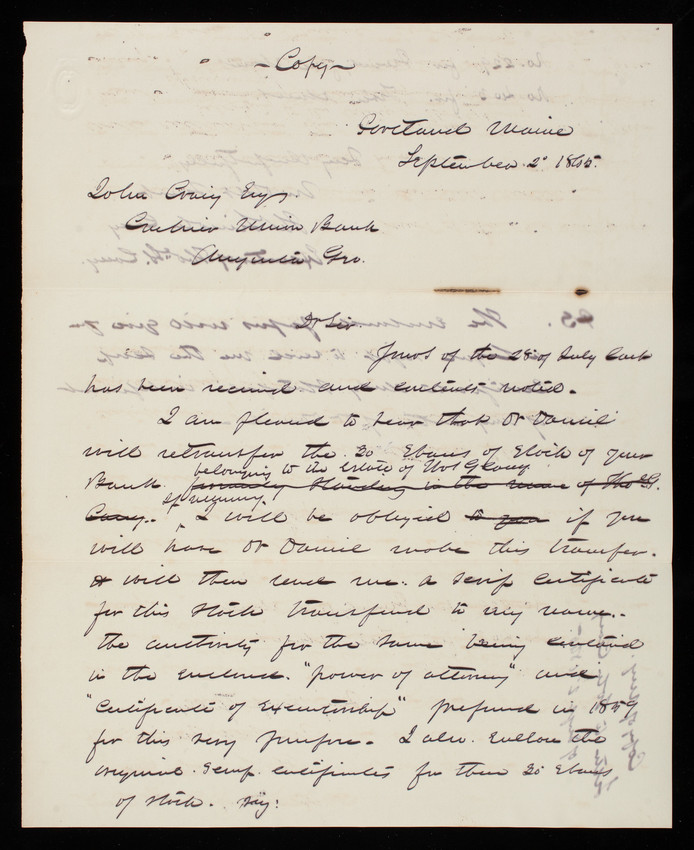 ~ Copy ~
Portland Maine
September 2d 1865.
John Craig Esqr.
Cashier Union Bank
Augusta Geo.
Dr Sir.
Yours of the 28 of July last
has been received and contents noted.
I am pleased to hear that Dr Daniel
will retransfer the 30 Shares of Stock of your
belonging to the Estate of Thos G Casey
Bank. formerly standing in the name of Thos G.
if necessary.
Casey. I will be obliged to you if you
will have Dr Daniel make this transfer.
& will then send me. a scrip certificate
for this stock transferred to my name.
the authority for the same being
in the enclosed. "power of attorney" and
"Certificate of Executorship" prepared in 1859
for this very purpose. I also enclose the
original scrip certificates for these 30 Shares
of stock. say: